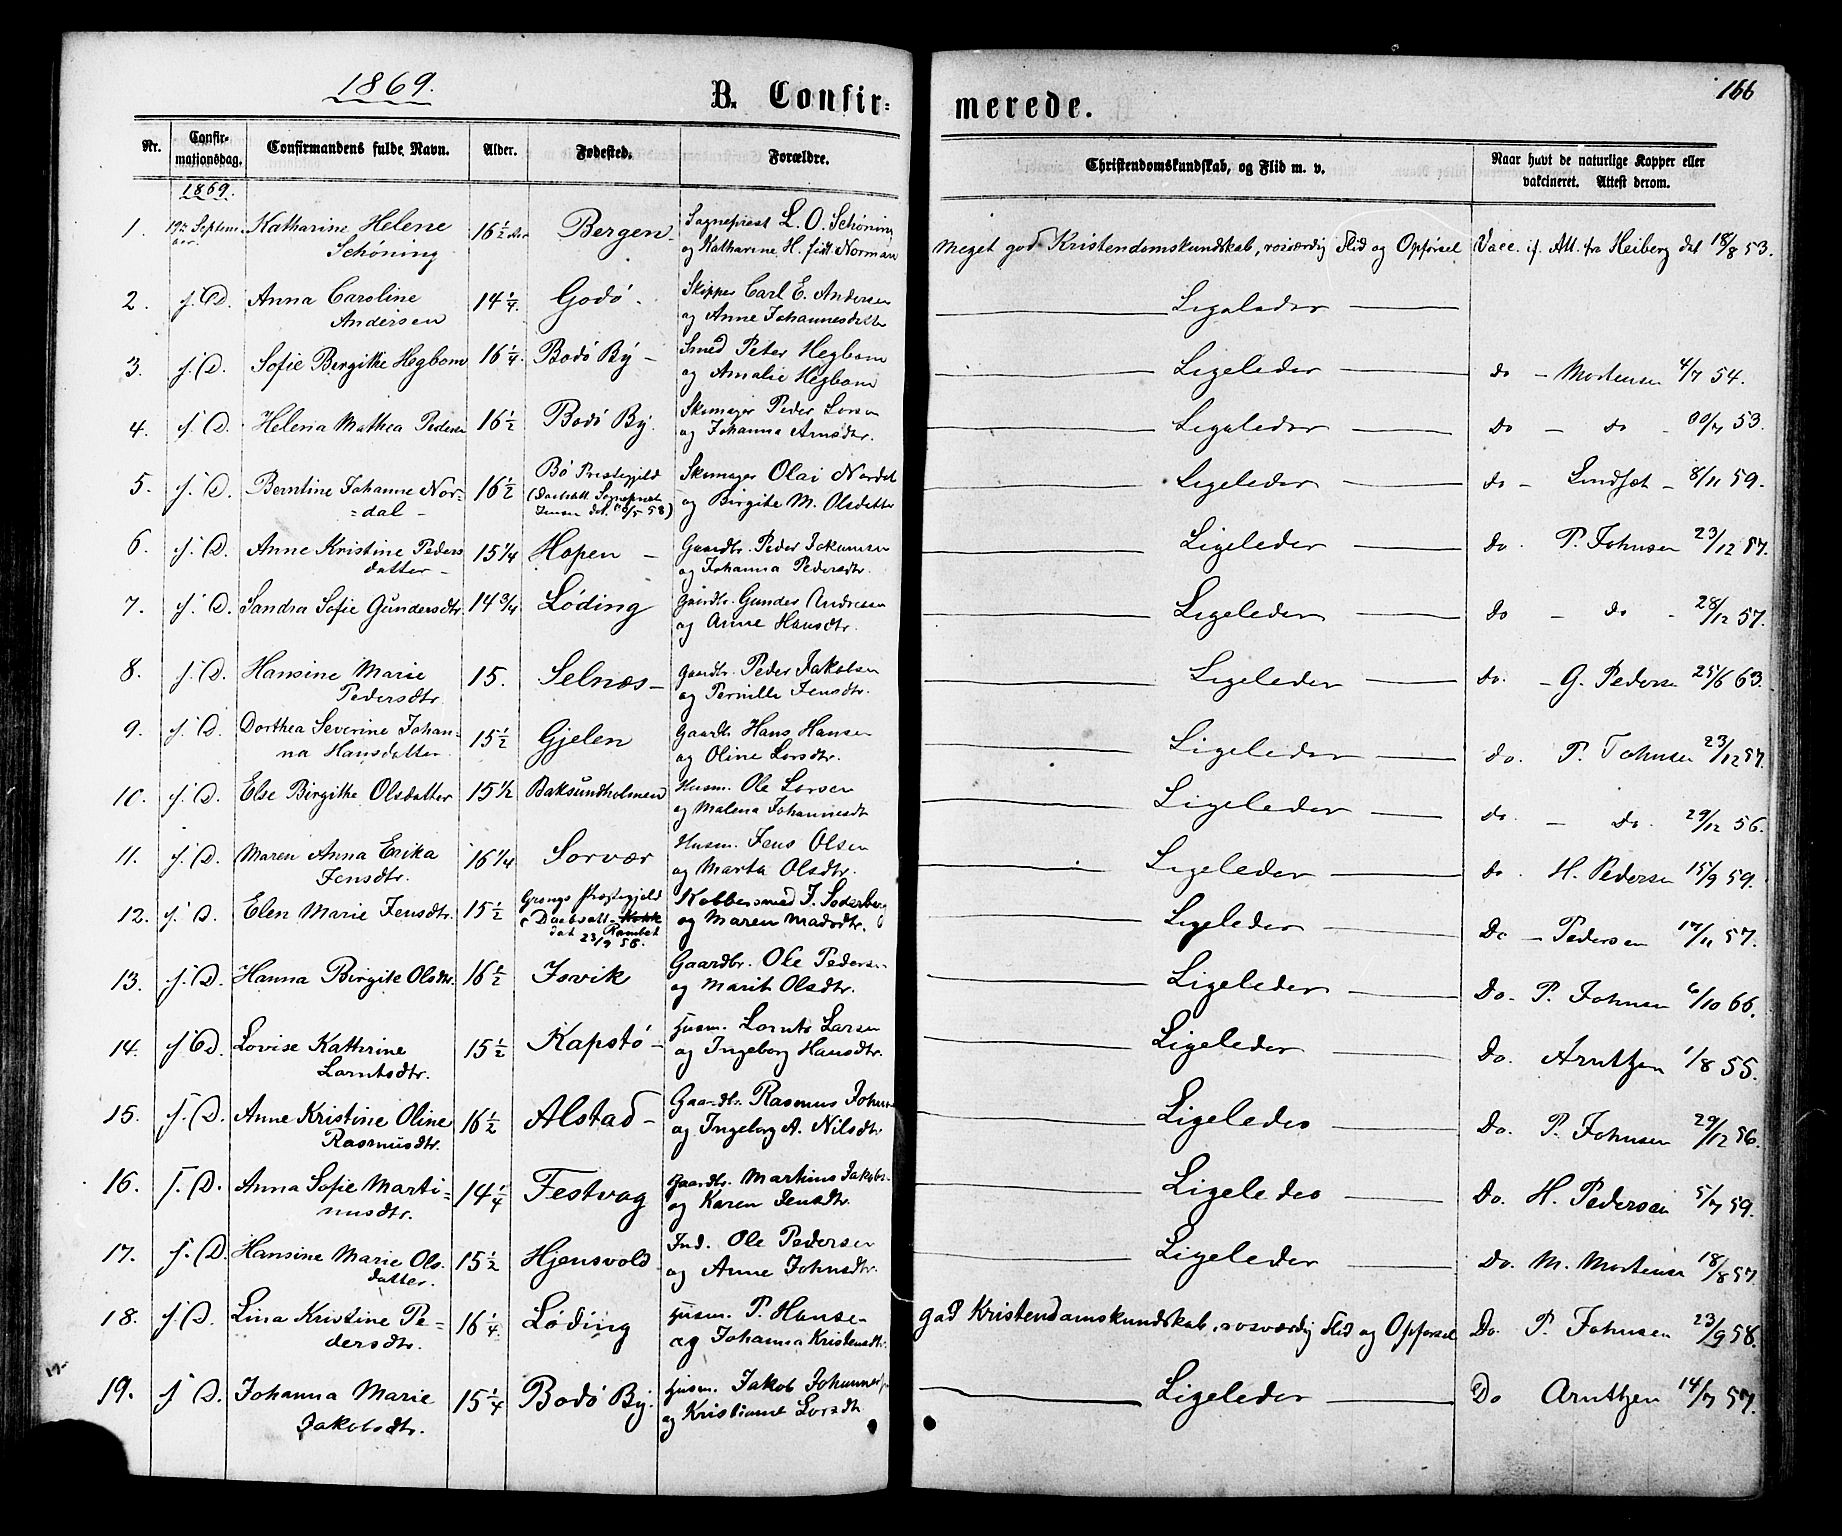 1869.
B. Confir=
merede.
166
Nr. Confir-mationsdag. Confirmandens fulde Navn. Alder. Fødested. Forældre. Christendomskundskab, og Flid m. v. Naar havt de naturlige Kopper eller vakcineret. Attest derom.
1869.
1. 19de Septem- Katharine Helene 16 1/2 Aar Bergen - Sogneprest L. O. Schöning
ber. Schöning og Katharine H. født Norman Meget god Kristendomskundskab, rosværdig Flid og Opførsel Vacc. if. Att. fra Heiberg dat 18/8 53.
2. s. D. Anna Caroline 14 1/4. Godö - Skipper Carl E. Andersen Ligeleder
Andersen og Anne Johannesdatter
3. s. D. Sofie Bergitte Hegbom 16 1/4. Bodö By - Smed Peter Hegbom Ligeleder do - Mortensen 4/7 54.
og Amalie Hegbom
4. s. D. Helena Mathea Pedersen 16 1/2 Bodö By. Skomager Peder Larsen Ligeleder do - do -
og Johanna Arnsdtr.
5. s. D. Berntine Johanne Nor= 16 1/2 Bö Prestegjeld Skomager Olai Nordal Ligeleder do - 8/11 59.
=dal - (Daabsatt. Sogneprest og Birgite M. Olsdatter
Jensen
6. s. D. Anne Kristine Peders 15 1/4 Hopen - Gaardbr. Peder Jokumsen Ligeleder do. P. Johnsen 23/12 57.
datter - og Johanna Pedersdtr.
7. s. D. Sandra Sofie Gundersdtr 14 3/4 Löding Gaardbr. Gunder Andresen Ligeleder do - do - 28/12 57.
og Anne Hansdtr.
8. s. D. Hansine Marie 15. Selnæs - Gaardbr. Peder Jakobsen Ligeleder do. - G. Pedersen 25/6 63.
Pedersdtr. og Pernille Jensdtr.
9. s. D. Dorthea Severine Johan= 15 1/2 Gjelen Gaardb. Hans Hansen Ligeleder do. P. Johnsen 23/12 57.
na Hansdatter og Oline Larsdtr.
10. s. D. Else Birgitte Olsdatter 15 1/2 Baksundholmen Husm. Ole Larsen Ligeleder do. - do. 29/12 56.
og Malena Johannesdt
11. s. D. Maren Anna Erika 16 1/4 Sorvær Husm. Jens Olsen Ligeleder do. H. Pedersen 15/9 59.
Jensdtr. og Marta Olsdtr.
12. s. D. Elen Marie Jensdtr. 15 1/2 Grongs Prestegjeld Kobbersmed J. Söderberg Ligeleder Do - Pedersen 17/11 57.
Daabsatt. og Maren Madsdtr.
dat
13. s. D. Hanna Birgite Olsdtr. 16 1/2 Jovik Gaardbr. Ole Pederse- Ligeleder Do - P. Johnsen 6/10 66.
og Marit Olsdtr.
14. s. D. Lovise Kathrine 15 1/2 Kapstö - Husm. Lornts Larsen Ligeleder Do. Arntzen 1/8 55.
Lorntsdtr. og Ingeborg Hansdtr.
15. s. D. Anne Kristine Oline 16 1/2 Alstad - Gaardbr. Rasmus Johns Ligeledes Do. P. Johnsen 29/12 56.
Rasmusdtr. og Ingeborg A. Nilsdtr.
16. s. D. Anna Sofie Marti= 14 1/4 Festvag Gaardbr. Martinus Jakobs- Ligeledes Do. H. Pedersen 5/7 59.
nusdtr. og Karen Jensdtr.
17. s. D. Hansine Marie Ols 15 1/2 Hjensvold Ind. Ole Pedersen Ligeleder Do. M. Mortensen 18/8 57.
datter. og Anne Johnsdtr.
18. s. D. Lina Kristine Pe= 16 1/4 Löding Husm. P. Hanse- god Kristendomskundskab, rosværdig Flid og Opførsel Do. P. Johnsen 23/9 58.
dersdtr. og Johanna Kristensdtr.
19. s. D. Johanna Marie 15 1/4 Bodö By. Husm. Jakob Johannes Ligeleder Do Arntzen 14/7 57.
Jakobsdtr. og Kristiane Larsdt